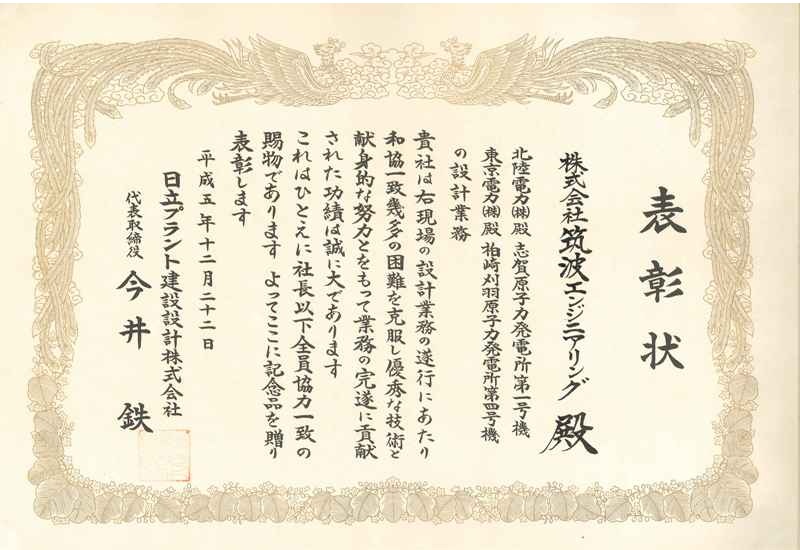 表彰状
株式会社筑波エンジニアリング殿
北陸電力㈱殿 志賀原子力発電所第一号機
東京電力㈱殿 柏崎刈羽原子力発電所第四号機
の設計業務
貴社は右現場の設計業務の遂行にあたり
和協一致幾多の困難を克服し優秀な技術と
献身的な努力とをもって業務の完遂に貢献
された功績は誠に大であります
これはひとえに社長以下全員協力一致の
賜物であります よってここに記念品を贈り
表彰します
平成五年十二月二十二日
日立プラント建設設計株式会社
代表取締役 今井 鉄